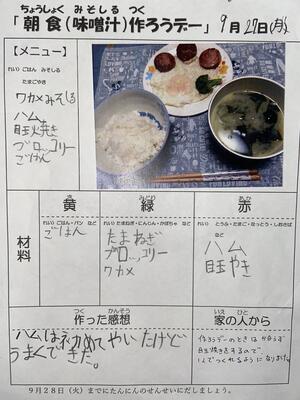 ちょうしょく みそしる つく
「朝食(味噌汁)作ろうデー」 9月27日(月)
【メニュー】
れい)ごはん みそしる
たまごやき など
ワカメみそしる
ハム
目玉焼き
ブロッコリー
ごはん
材料
黄
みどり
緑
あか
赤
れい)ごはん・パン など
ごはん
れい)たまねぎ・にんじん・かぼちゃ など
たまねぎ
ブロッコリー
ワカメ
れい)とうふ・たまご・なっとう・しおさば など
ハム
目玉やき
つく かんそう
作った感想
ハムは初めてやいたけど
うまくできた。
いえ ひと
家の人から
作ろうデーのときは かならず
目玉焼きをするので、
1人でつくれるようになりました。
9月28日(火)までにたんにんのせんせいにだしましょう。